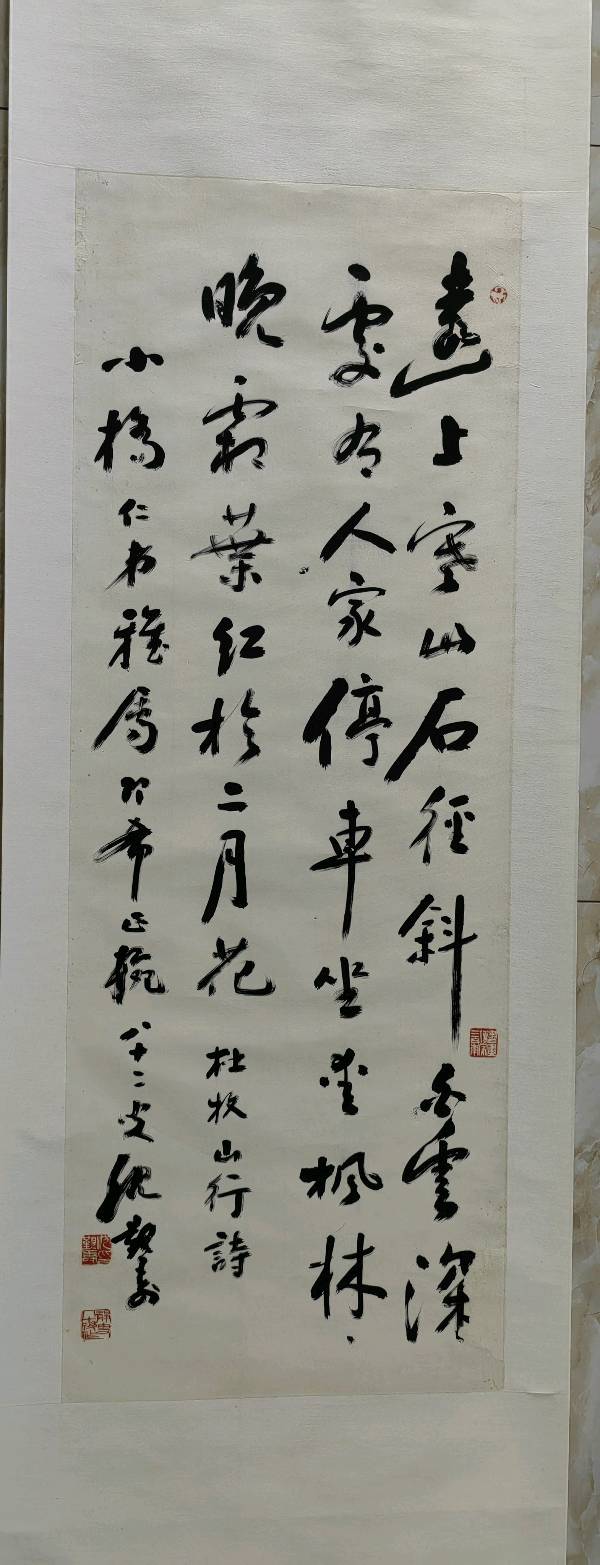 遠上寒山石徑斜白雲深
處有人家停車坐愛楓林
晚霜葉紅於二月花 杜牧山行詩
小橋仁弟雅屬即希正腕 八十二叟沈覲壽